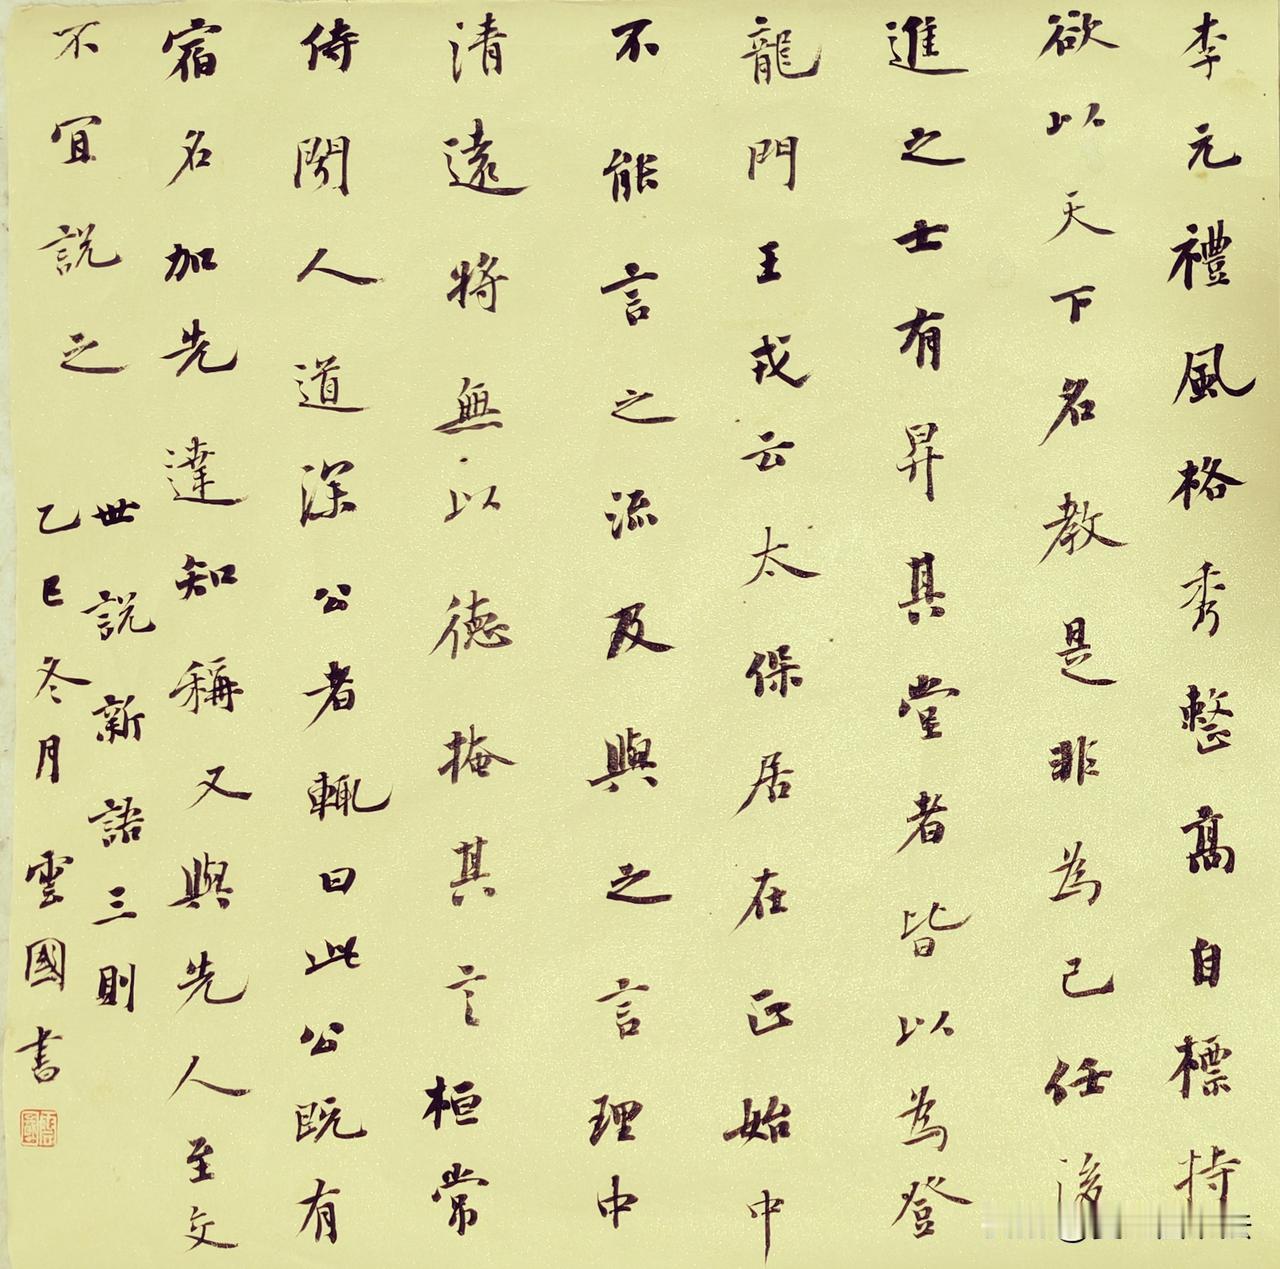 李元禮風格秀整高自標持
欲以天下名教是非為己任後
進之士有昇其堂者皆以為登
龍門王戎云太保居在正始中
不能言之流及與之言理中
清遠將無以德掩其言桓常
侍聞人道深公者輒曰此公既有
宿名加先達知稱又與先人至交
不宜說之
世說新語三則
乙巳冬月雲國書